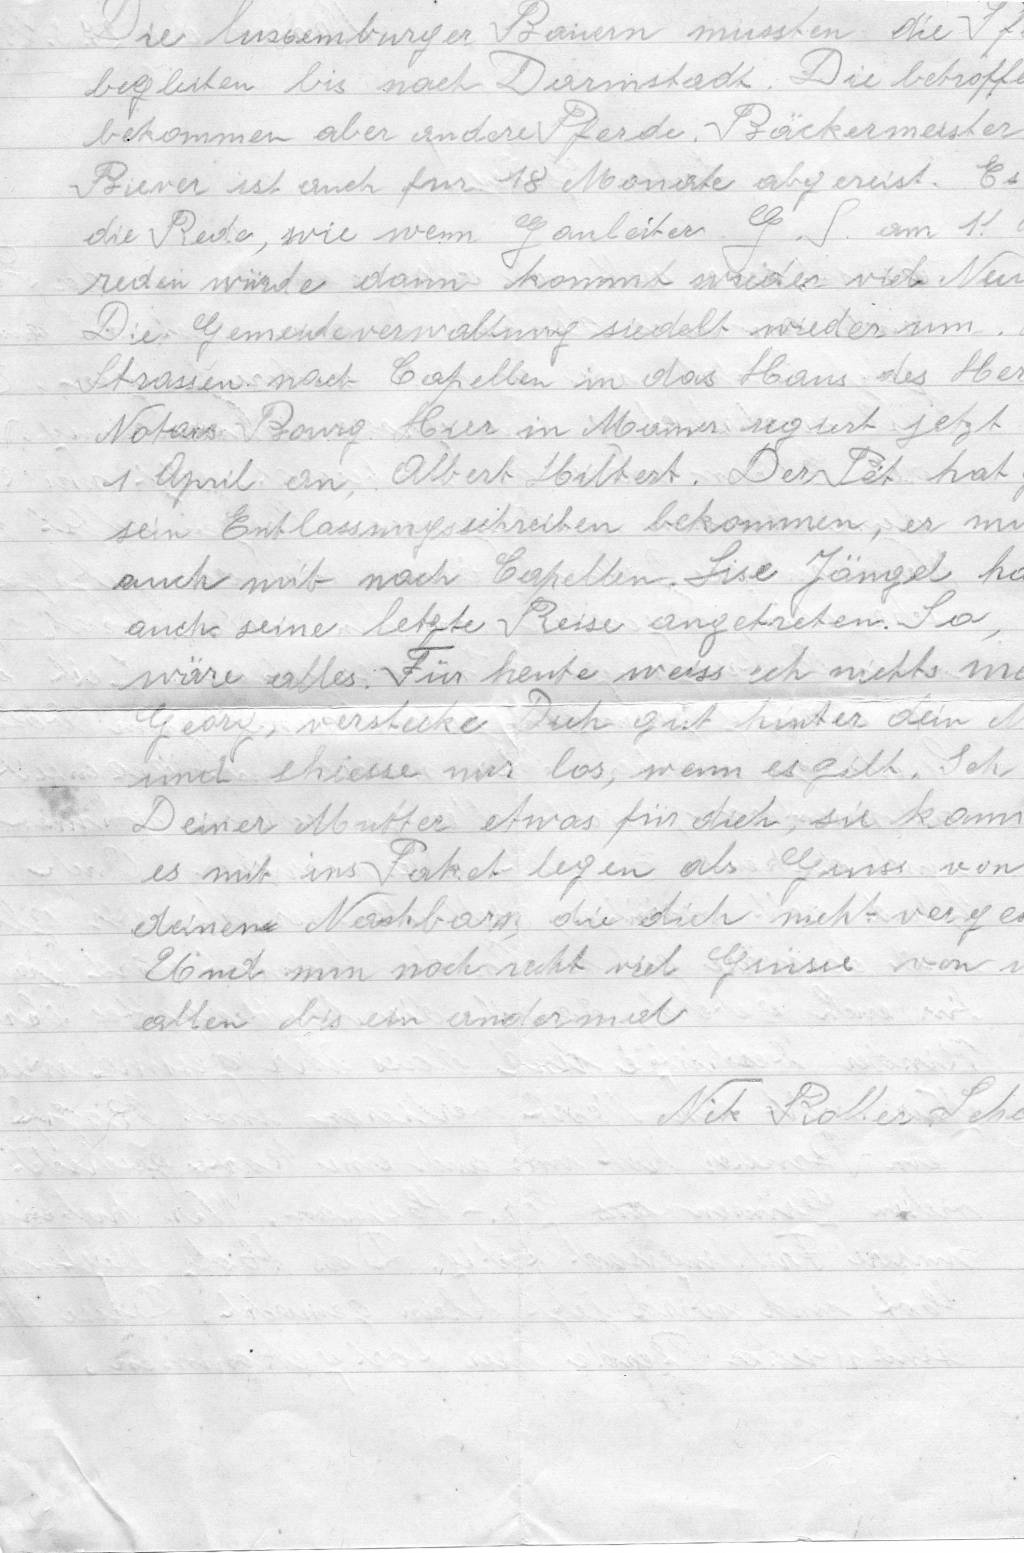 Die luxemburger Bauern mussten die Pfe
begleiten bis nach Darmstadt. Die betroffe
bekommen aber andere Pferde. Bäckermeister
Biever ist auch für 18 Monate abgereist. Es
die Rede, wie wenn Gauleiter G. S. am 11
reden würde dann kommt wieder viel Neu
Die Gemeideverwaltung siedelt wieder um.
Strassen nach Capellen in das Haus des Her
Notars Bourg. Hier in Mamer regiert jetzt
1 April an, Albert Hilbert. Der Pët hat
sein Entlassungsschreiben bekommen, er mu
auch mit nach Capellen. Lise Jängel ha
auch seine letzte Reise angetreten. So,
wäre alles. Für heute weiss ich nichts me
Georg, verstecke Dich gut hinter dein M
und schiesse nur los, wenn es gilt. Ich
Deiner Mutter etwas für dich, sie kann
es mit ins Paket legen als Gruss von
deinen Nachbarn, die dich nicht verges
Und nun noch recht viel Grüsse von u
allen bis ein andermal
Nik Roller Scho